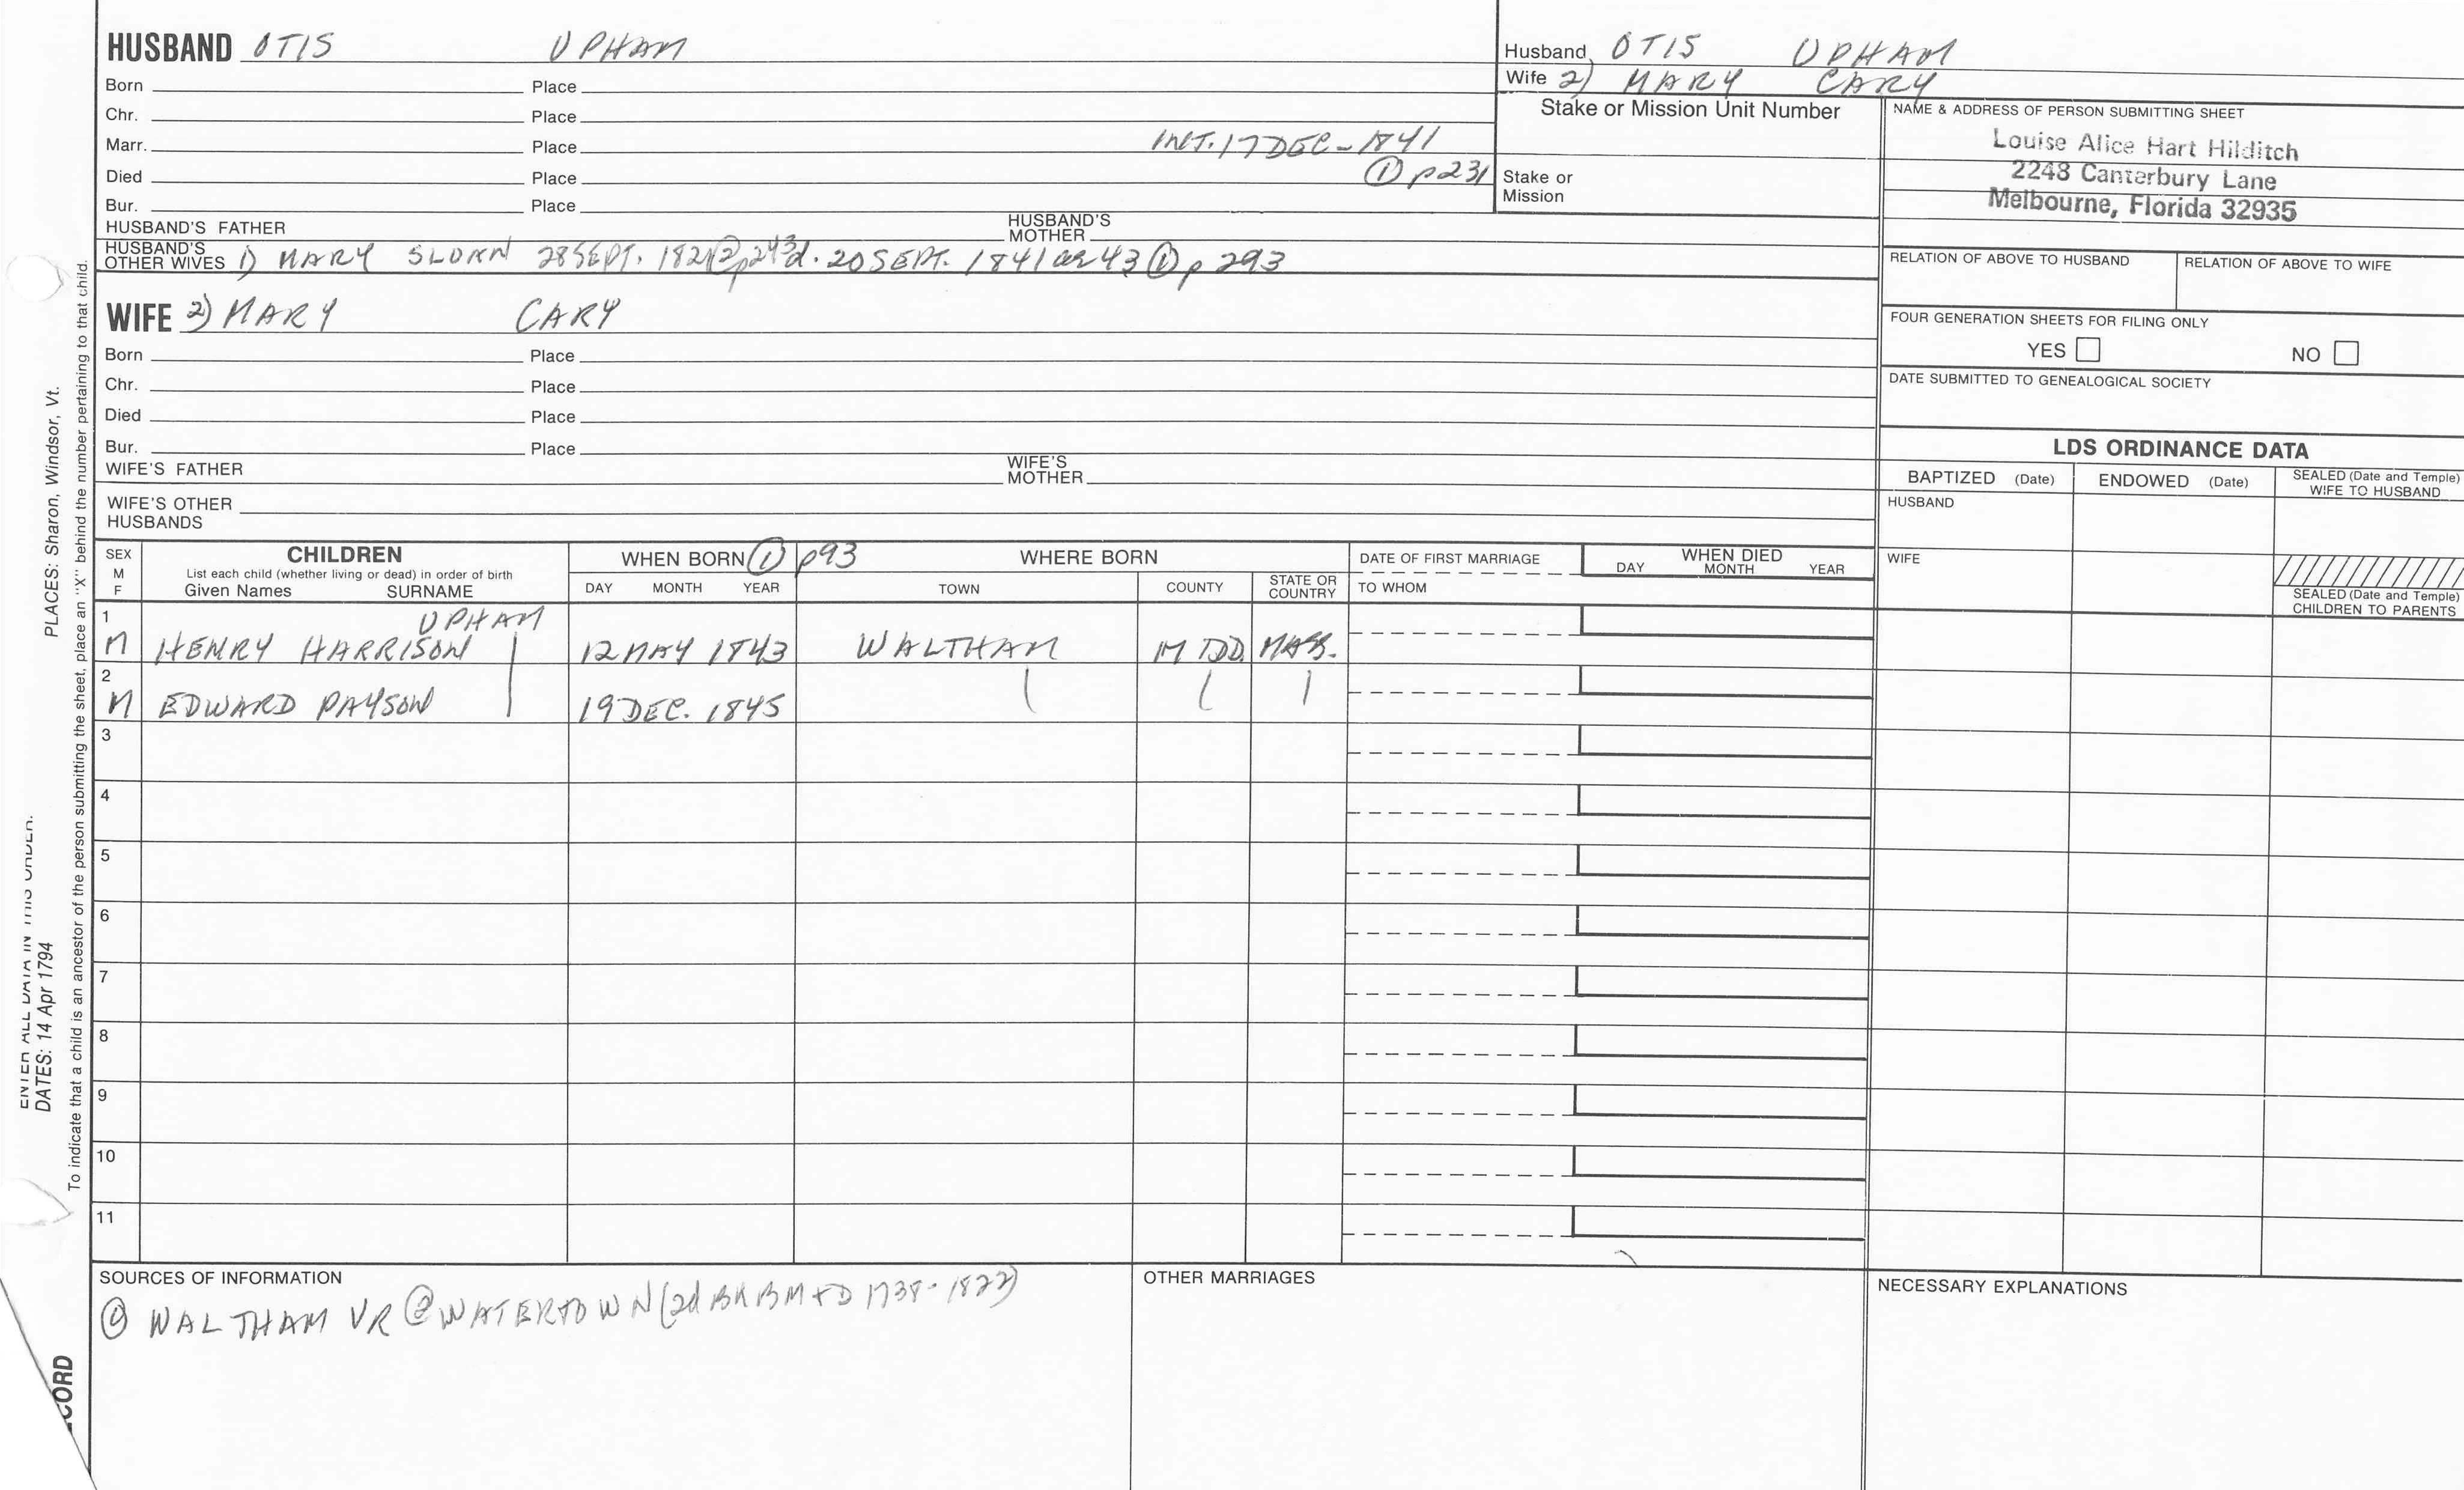 HUSBAND OTIS UPHAM
Born Place
Chr. Place
Marr. Place INT. 17 DEC - 1841
Died Place ① p231
Bur. Place
HUSBAND'S FATHER HUSBAND'S MOTHER
HUSBAND'S OTHER WIVES 1) MARY 28 SEPT. 1821 ② p243 d. 20 SEPT. 1841 ae 43 ① p 293
Husband OTIS UPHAM
Wife 2) MARY CARY
Stake or Mission Unit Number
Stake or Mission
NAME & ADDRESS OF PERSON SUBMITTING SHEET
Louise Alice Hart Hilditch
2248 Canterbury Lane
Melbourne, Florida 32935
RELATION OF ABOVE TO HUSBAND RELATION OF ABOVE TO WIFE
FOUR GENERATION SHEETS FOR FILING ONLY
YES NO
DATE SUBMITTED TO GENEALOGICAL SOCIETY
WIFE 2) MARY CARY
Born Place
Chr. Place
Died Place
Bur. Place
WIFE'S FATHER WIFE'S MOTHER
WIFE'S OTHER HUSBANDS
LDS ORDINANCE DATA
BAPTIZED (Date) ENDOWED (Date) SEALED (Date and Temple) WIFE TO HUSBAND
HUSBAND
WIFE
SEALED (Date and Temple)
CHILDREN TO PARENTS
SEX M F
CHILDREN
List each child (whether living or dead) in order of birth
Given Names SURNAME
WHEN BORN ① p93
DAY MONTH YEAR
WHERE BORN
TOWN COUNTY STATE OR COUNTRY
DATE OF FIRST MARRIAGE
TO WHOM
WHEN DIED
DAY MONTH YEAR
1 UPHAM
M HENRY HARRISON 12 MAY 1843 WALTHAM MIDD MASS.
2
M EDWARD PAYSON 19 DEC. 1845
3
4
5
6
7
8
9
10
11
SOURCES OF INFORMATION
① WALTHAM VR ② WATERTOWN (2d BK B M + D 1738-1822)
OTHER MARRIAGES
NECESSARY EXPLANATIONS
PLACES: Sharon, Windsor, Vt.
ENTER ALL DATA IN THIS ORDER.
DATES: 14 Apr 1794
To indicate that a child is an ancestor of the person submitting the sheet, place an "X" behind the number pertaining to that child.